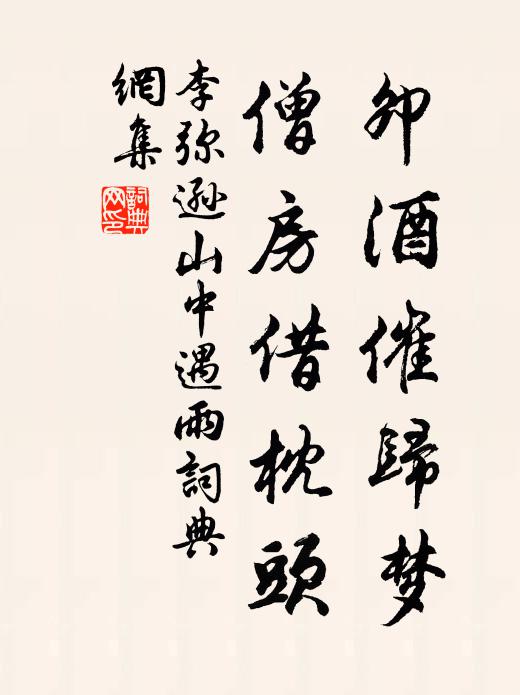 卯酒催归梦
僧房借枕頭
李弥遜山中遇雨詞典
網集
詞典
网印